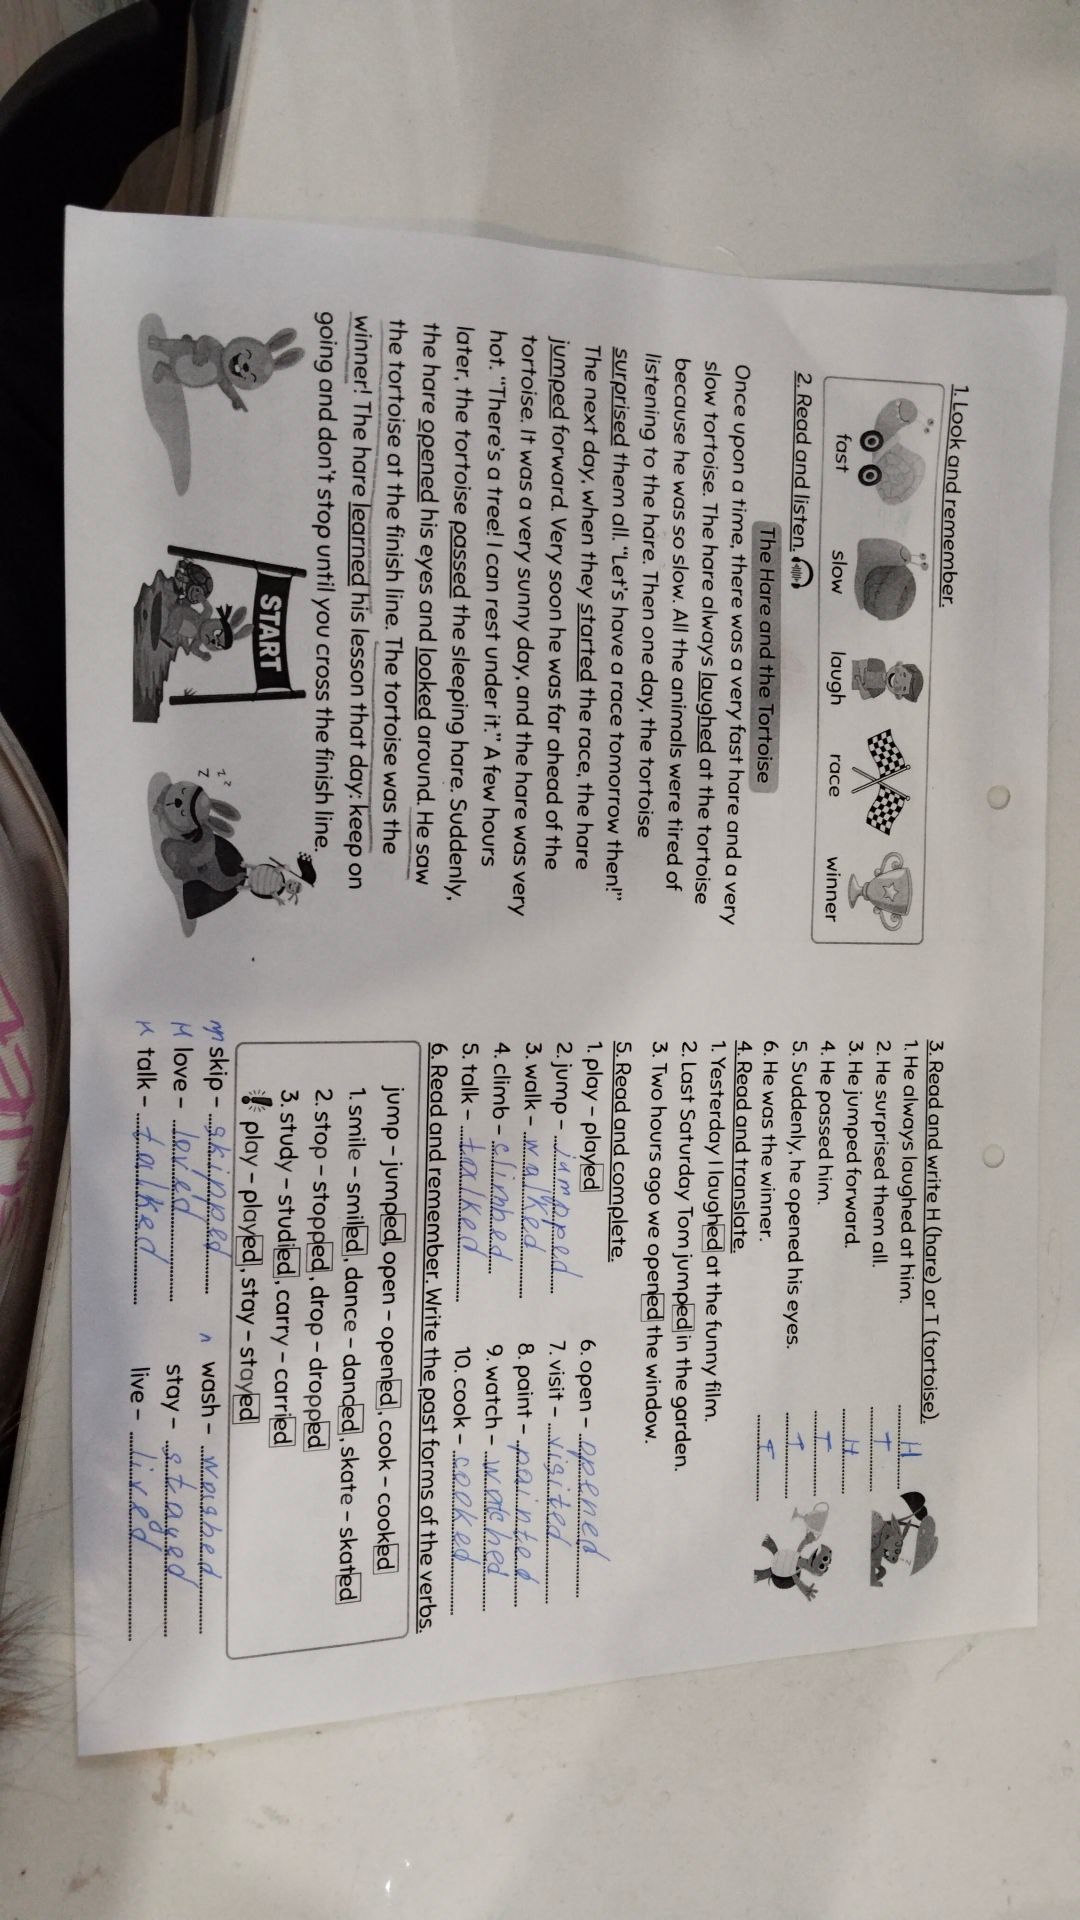 1. Look and remember.
fast slow laugh race winner
2. Read and listen.
The Hare and the Tortoise
Once upon a time, there was a very fast hare and a very
slow tortoise. The hare always laughed at the tortoise
because he was so slow. All the animals were tired of
listening to the hare. Then one day, the tortoise
surprised them all. "Let's have a race tomorrow then!"
The next day, when they started the race, the hare
jumped forward. Very soon he was far ahead of the
tortoise. It was a very sunny day, and the hare was very
hot. "There's a tree! I can rest under it." A few hours
later, the tortoise passed the sleeping hare. Suddenly,
the hare opened his eyes and looked around. He saw
the tortoise at the finish line. The tortoise was the
winner! The hare learned his lesson that day: keep on
going and don't stop until you cross the finish line.
START
z z
z
3. Read and write H (hare) or T (tortoise).
1. He always laughed at him. H
2. He surprised them all. T
3. He jumped forward. H
4. He passed him. T
5. Suddenly, he opened his eyes. T
6. He was the winner. T
4. Read and translate.
1. Yesterday I laughed at the funny film.
2. Last Saturday Tom jumped in the garden.
3. Two hours ago we opened the window.
5. Read and complete.
1. play – played 6. open – opened
2. jump – jumpped 7. visit – visited
3. walk – walked 8. paint – painted
4. climb – climbed 9. watch – watched
5. talk – talked 10. cook – cooked
6. Read and remember. Write the past forms of the verbs.
jump – jumped, open – opened, cook – cooked
1. smile – smiled, dance – danced, skate – skated
2. stop – stopped, drop – dropped
3. study – studied, carry – carried
play – played, stay – stayed
skip – skipped wash – washed
love – loved stay – stayed
talk – talked live – lived